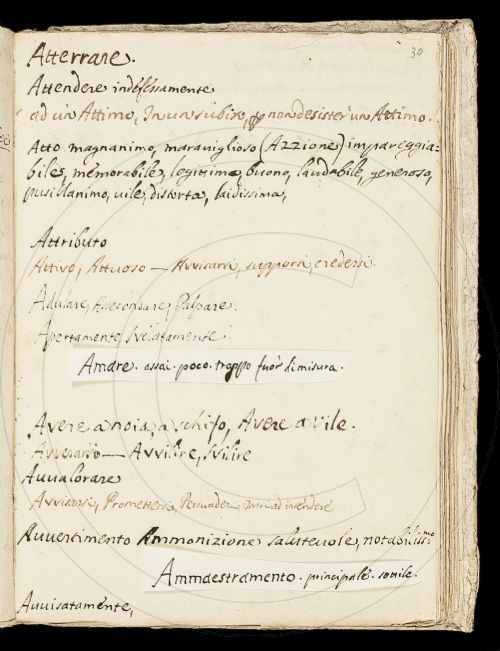 30
Atterrare.
Attendere indefessamente
ad un Attimo, In un subire, non desister un Attimo.
Atto magnanimo, maraviglioso (Azzione) impareggia=
biles, memorabile, legitima, buono, laudabile, generoso,
pusillanimo, vile, distorta, laidissima,
Attributo
Attivo, Attuoso — Avvisarsi, supporsi, credersi
Adulare, Assecondare, Palpare.
Apertamente, svelatamente.
Amare. assai. poco. troppo fuor di misura.
Avere a noia, a schifo, Avere a vile.
Avversario — Avvilire, svilire
Avvalorare
Avvisarsi, Promettersi, Persuader
Avvertimento Ammonizione salutevole, notabiliss.mo
Ammaestramento. principale.
Avvisatamente,